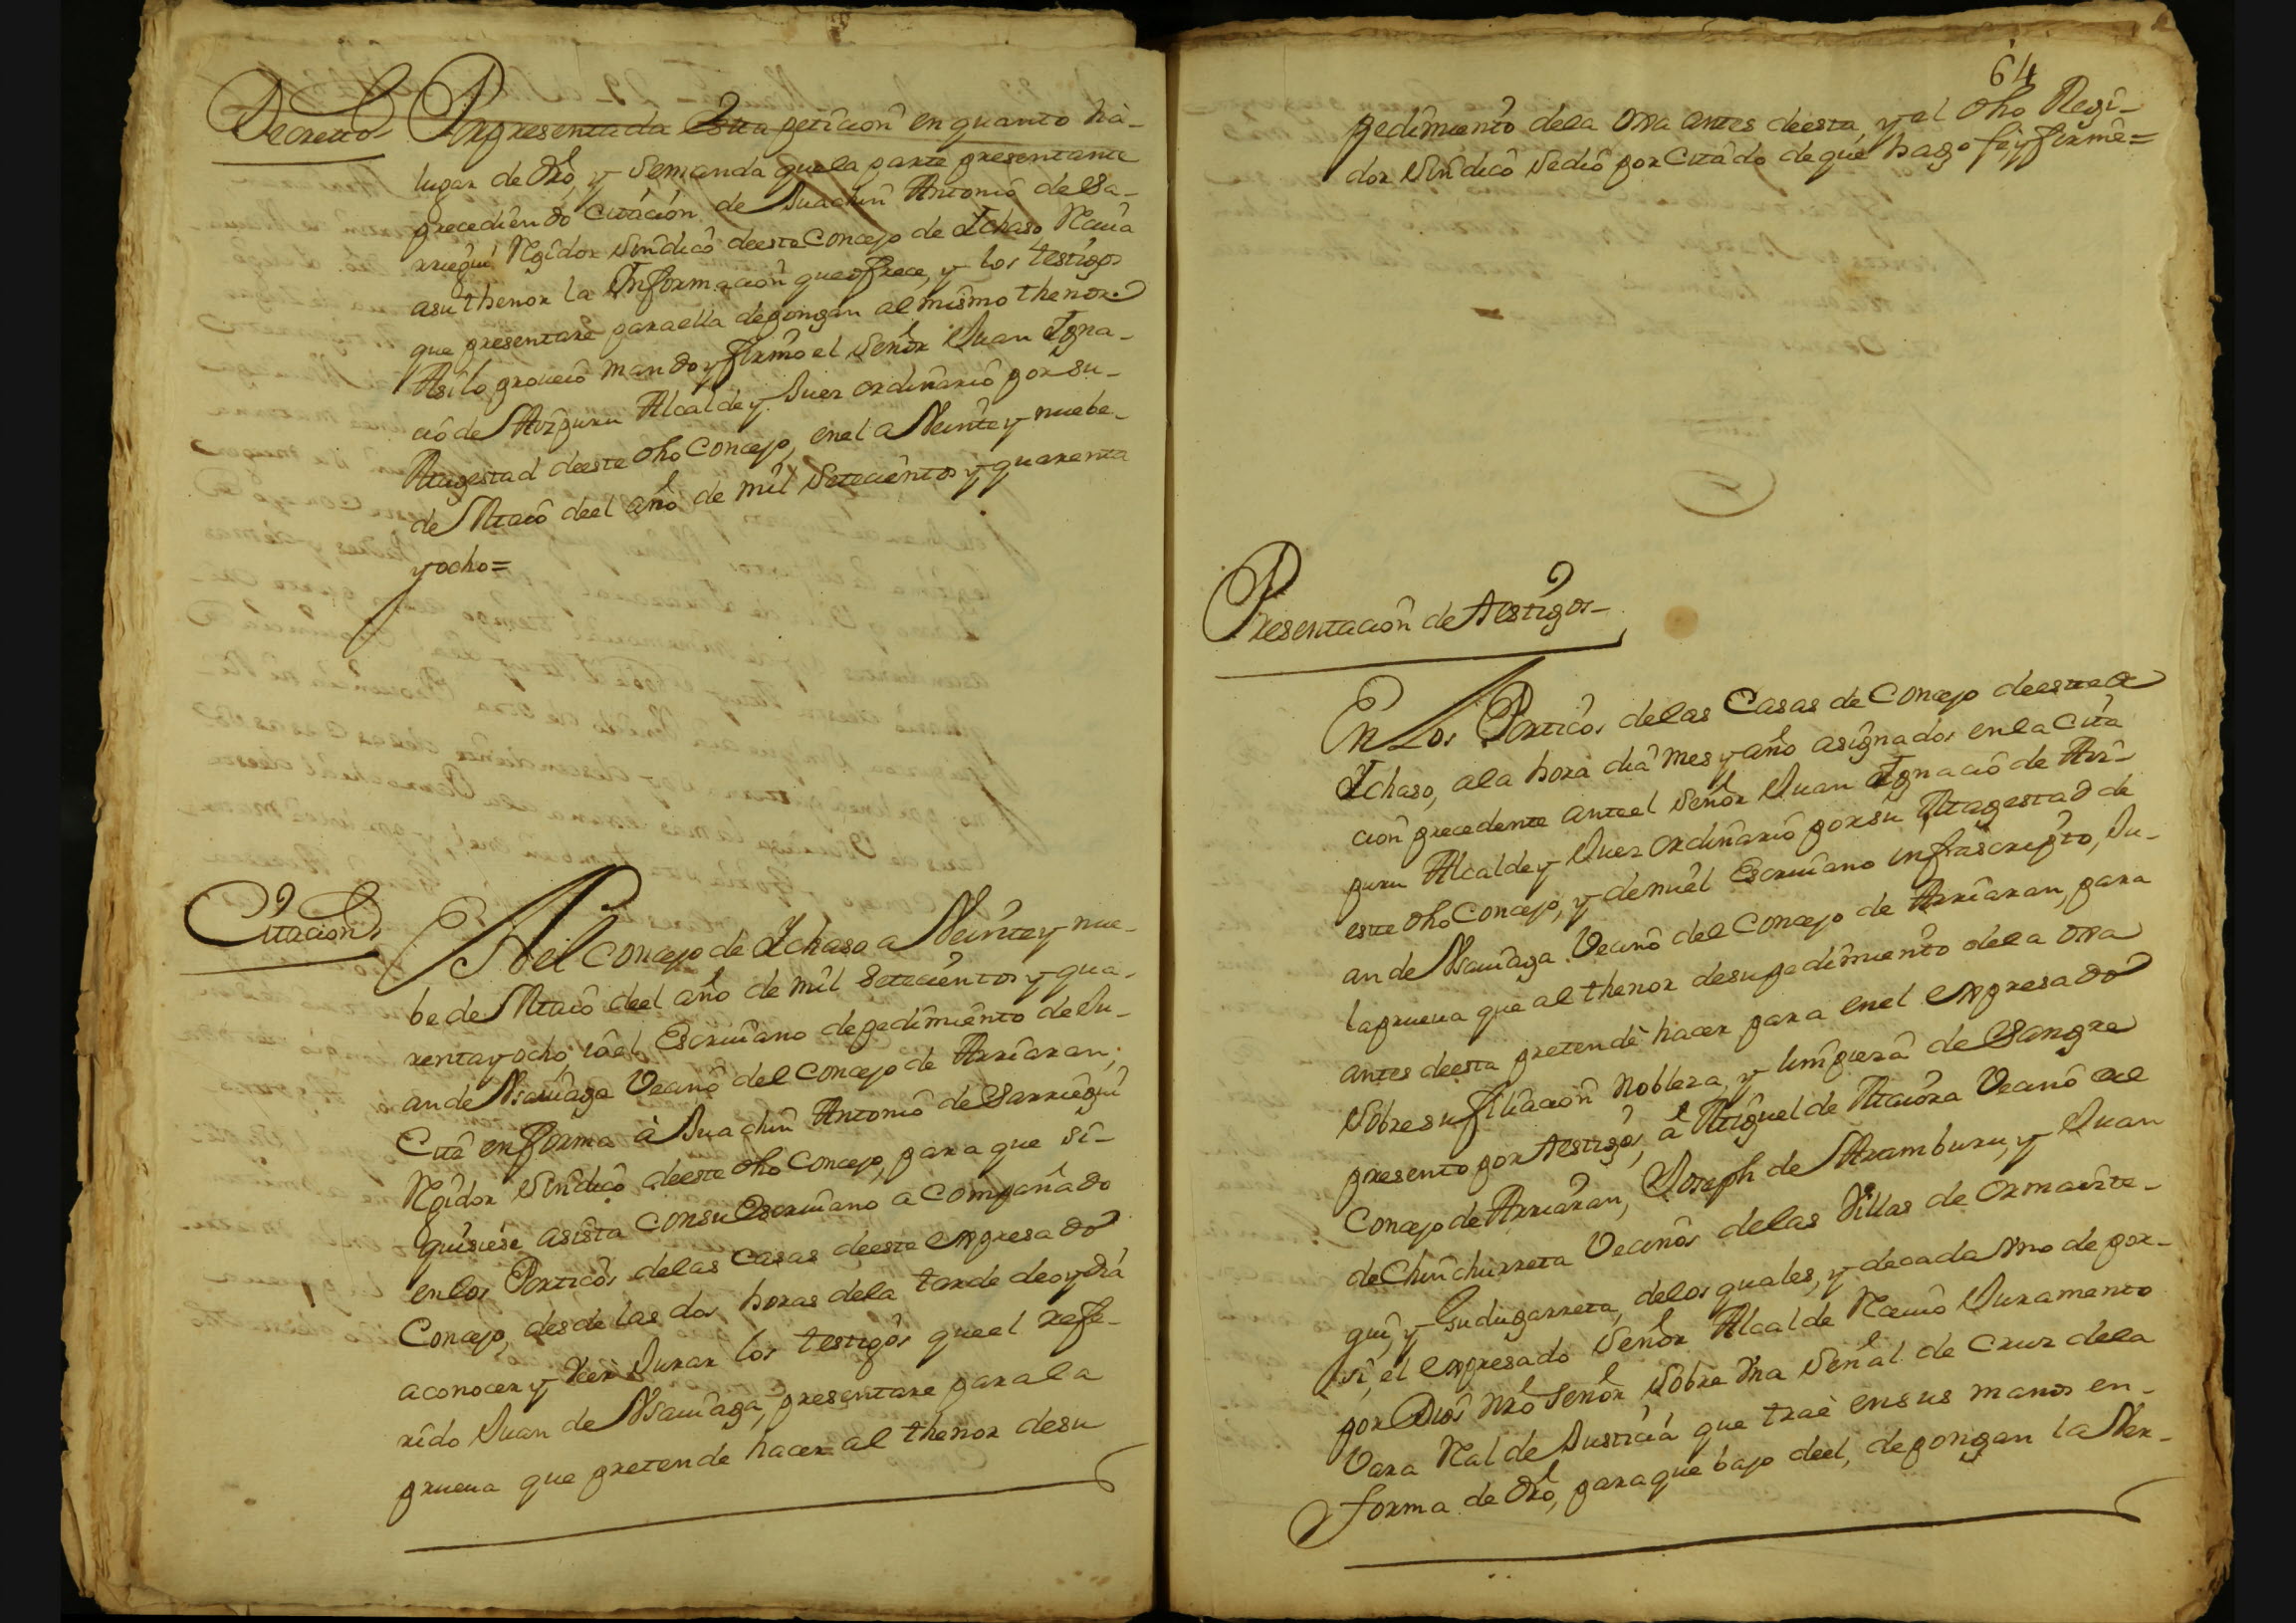 Decreto
Por presentada esta peticion en quanto há-
lugar de dro, y se manda que la parte presentante
precediendo citación de Juachin Antonio de Sa-
rriegui Rejidor Sindico de este Concejo de Ichaso Reciva
asu thenor la Informazion que ofrece, y los testigos
que presentare para ella depongan al mismo thenor
Asi lo proueio mando y firmo el Señor Juan Igna-
cio de Aizpuru Alcalde y Juez ordinario por su-
Magestad de este dho Concejo, en el a Veinte y nuebe-
de Maio de el año de mil Setecientos y quarenta
y ocho=
Citacion
En el Concejo de Ichaso a Veinte y nue-
be de Maio de el año de mil setecientos y qua-
renta y ocho, io el Escriuano de pedimiento de Ju-
an de Vsauiaga Vecino del Concejo de Arriaran,
Cité en forma à Juachin Antonio de Sarriegui
Rgidor Sindico de este dho Concejo, para que si-
quisiese asista con su Escriuano acompañado
en los Porticos de las casas de este expresado
Concejo, desde las dos horas de la tarde de oy dia
a conocer y veer Jurar los testigos que el refe-
rido Juan de Vsauiaga, presentare para la
prueua que pretende hacer al thenor de su
64
pedimiento de la otra antes de esta, y el dho Regi-
dor Sindico se dió por citado de que hago fe y firmé=
Presentacion de testigos-
En Los Porticos de las Casas de Concejo de este de
Ichaso, a la hora dia mes y año asignados en la cita
cion precedente ante el Señor Juan Ignacio de Aiz-
puru Alcalde y Juez ordinario por su Magestad de
este dho Concejo, y de mi el Escriuano infrascripto, Ju-
an de Vsauiaga Vecino del Concejo de Arriaran, para
la prueua que al thenor de su pedimiento de la otra
antes de esta pretende hacer para en el expresado
Sobre su filiacion nobleza, y limpieza de Sangre
presento por testigos, à Miguel de Maiora Vecino de
Concejo de Arriaran, Joseph de Aramburu, y Juan
de Chinchurreta Vecinos de las Villas de Ormaizte-
gui, y Gudugarreta, de los quales, y de cada vno de por-
si, el expresado Señor Alcalde Reciuio Juramento
por Dios nro Señor Sobre Vna Señal de Cruz de la
Vara Ral de Justicia que traé en sus manos en-
forma de dro, para que bajo de el, depongan la Ver-